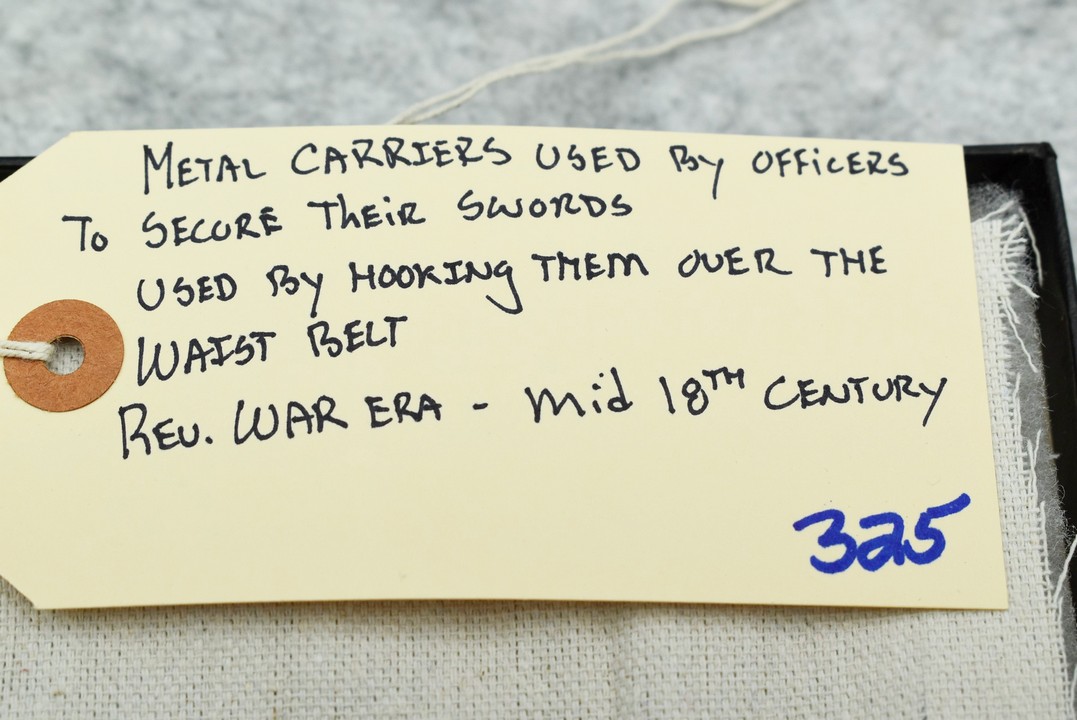 METAL CARRIERS USED By OFFiCERS
To SECURE TheiR SWORDS
USED By HOOKING THEM OVER THE
WAIST BELT
REV. WAR ERA - Mid 18TH CENTURY
325